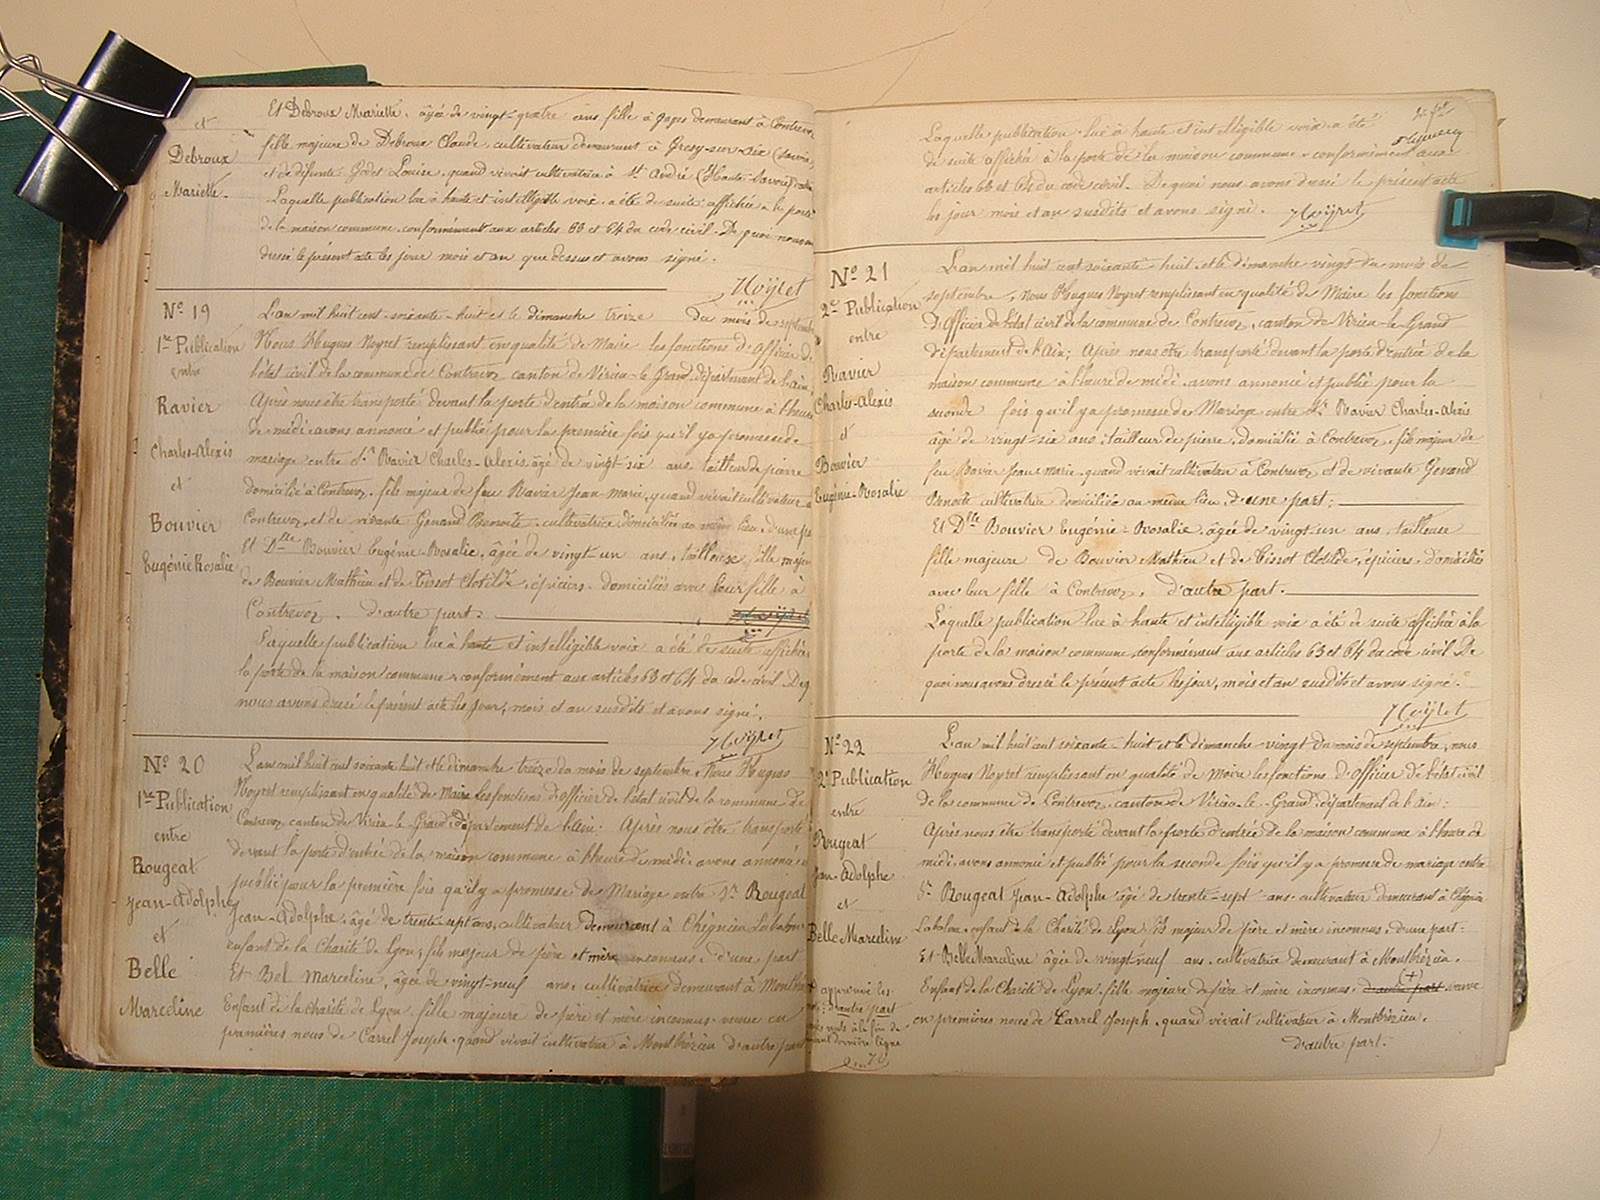 et
Debroux
Mariette.
Et Debroux Mariette, âgée de vingt-quatre ans fille à gages demeurant à Contrevoz
fille majeure de Debroux Claude, cultivateur demeurant à Gresy-sur-Aix (Savoie)
et de défunte Godet Louise, quand vivait cultivatrice à St André (Haute-Savoie)
Laquelle publication lue à haute et intelligible voix a été de suite affichée à la porte
de la maison commune conformément aux articles 63 et 64 du code civil. De quoi nous avons
dressé le présent acte les jour mois et an que dessus et avons signé.
HNoyret
No 19
1re Publication
entre
Ravier
Charles-Alexis
et
Bouvier
Eugénie Rosalie
L'an mil huit cent soixante-huit et le dimanche treize du mois de septembre
Nous Hugues Noyret remplissant en qualité de Maire les fonctions d'officier de
l'état civil de la commune de Contrevoz canton de Virieu-le-Grand, département de l'Ain
Après nous être transporté devant la porte d'entrée de la maison commune à l'heure
de midi avons annoncé et publié pour la première fois qu'il y a promesse de
mariage entre Sr Ravier Charles-Alexis âgé de vingt-six ans tailleur de pierre
domicilié à Contrevoz, fils majeur de feu Ravier Jean-Marie, quand vivait cultivateur à
Contrevoz, et de vivante Genand Benoite, cultivatrice domiciliée au même lieu, d'une part
Et Dlle Bouvier Eugénie-Rosalie, âgée de vingt-un ans, tailleuse, fille majeure
de Bouvier Mathieu et de Tissot Clotilde, épiciers, domiciliés avec leur fille à
Contrevoz, d'autre part.
Laquelle publication lue à haute et intelligible voix a été de suite affichée
la porte de la maison commune conformément aux articles 63 et 64 du code civil De q
nous avons dressé le présent acte les jour, mois et an susdits et avons signé.
HNoyret
No 20
1re Publication
entre
Rougeat
Jean-Adolphe
et
Belle
Marceline
L'an mil huit cent soixante huit et le dimanche treize du mois de septembre Nous Hugues
Noyret remplissant en qualité de Maire les fonctions d'officier de l'état civil de la commune de
Contrevoz canton de Virieu-le-Grand département de l'Ain: Après nous être transporté
devant la porte d'entrée de la maison commune à l'heure de midi avons annoncé et
publié pour la première fois qu'il y a promesse de Mariage entre Sr Rougeat
Jean-Adolphe, âgé de trente-sept ans, cultivateur demeurant à Chignieu Labalme
enfant de la Charité de Lyon, fils majeur de père et mère inconnus, d'une part
Et Bel Marceline, âgée de vingt-neuf ans, cultivatrice demeurant à Montbrézieu
Enfant de la Charité de Lyon, fille majeure de père et mère inconnus veuve en
premières noces de Carrel Joseph, quand vivait cultivateur à Montbrézieu d'autre part
Laquelle publication lue à haute et intelligible voix a été
de suite affichée à la porte de la maison commune conformément aux
articles 63 et 64 du code civil. De quoi nous avons dressé le présent acte
les jour mois et an susdits et avons signé. HNoyret
No 21
2e Publication
entre
Ravier
Charles-Alexis
et
Bouvier
Eugénie-Rosalie
L'an mil huit cent soixante-huit et le dimanche vingt du mois de
septembre, Nous Hugues Noyret remplissant en qualité de Maire les fonctions
d'Officier de l'état civil de la commune de Contrevoz, canton de Virieu-le-Grand
département de l'Ain; Après nous être transporté devant la porte d'entrée de la
maison commune à l'heure de midi, avons annoncé et publié pour la
seconde fois qu'il y a promesse de Mariage entre Sr Ravier Charles-Alexis
âgé de vingt-six ans, tailleur de pierre, domicilié à Contrevoz, fils majeur de
feu Ravier Jean-Marie quand vivait cultivateur à Contrevoz, et de vivante Genand
Benoite cultivatrice domiciliée au même lieu, d'une part:
Et Dlle Bouvier Eugénie-Rosalie, âgée de vingt-un ans, tailleuse
fille majeure de Bouvier Mathieu et de Tissot Clotilde, épiciers, domiciliés
avec leur fille à Contrevoz, d'autre part.
Laquelle publication lue à haute et intelligible voix a été de suite affichée à la
porte de la maison commune conformément aux articles 63 et 64 du code civil De
quoi nous avons dressé le présent acte les jour, mois et an susdits et avons signé.
HNoyret
No 22
2e Publication
entre
Rougeat
Jean-Adolphe
et
Belle Marceline
L'an mil huit cent soixante-huit et le dimanche vingt du mois de septembre, nous
Hugues Noyret remplissant en qualité de Maire les fonctions d'officier de l'état civil
de la commune de Contrevoz, canton de Virieu-le-Grand, département de l'Ain:
Après nous être transporté devant la porte d'entrée de la maison commune à l'heure de
midi, avons annoncé et publié pour la seconde fois qu'il y a promesse de mariage entre
Sr Rougeat Jean-Adolphe âgé de trente-sept ans, cultivateur demeurant à Chignieu
Labalme, enfant de la Charité de Lyon, fils majeur de père et mère inconnus, d'une part:
Et Belle Marceline âgée de vingt-neuf ans, cultivatrice demeurant à Montbrézieu,
Enfant de la Charité de Lyon, fille majeure de père et mère inconnus, d'autre part (+) veuve
en premières noces de Carrel Joseph, quand vivait cultivateur à Montbrézieu.
d'autre part.
+ approuvé les
mots: d'autre part
rayés nuls à la fin de
avant dernière ligne